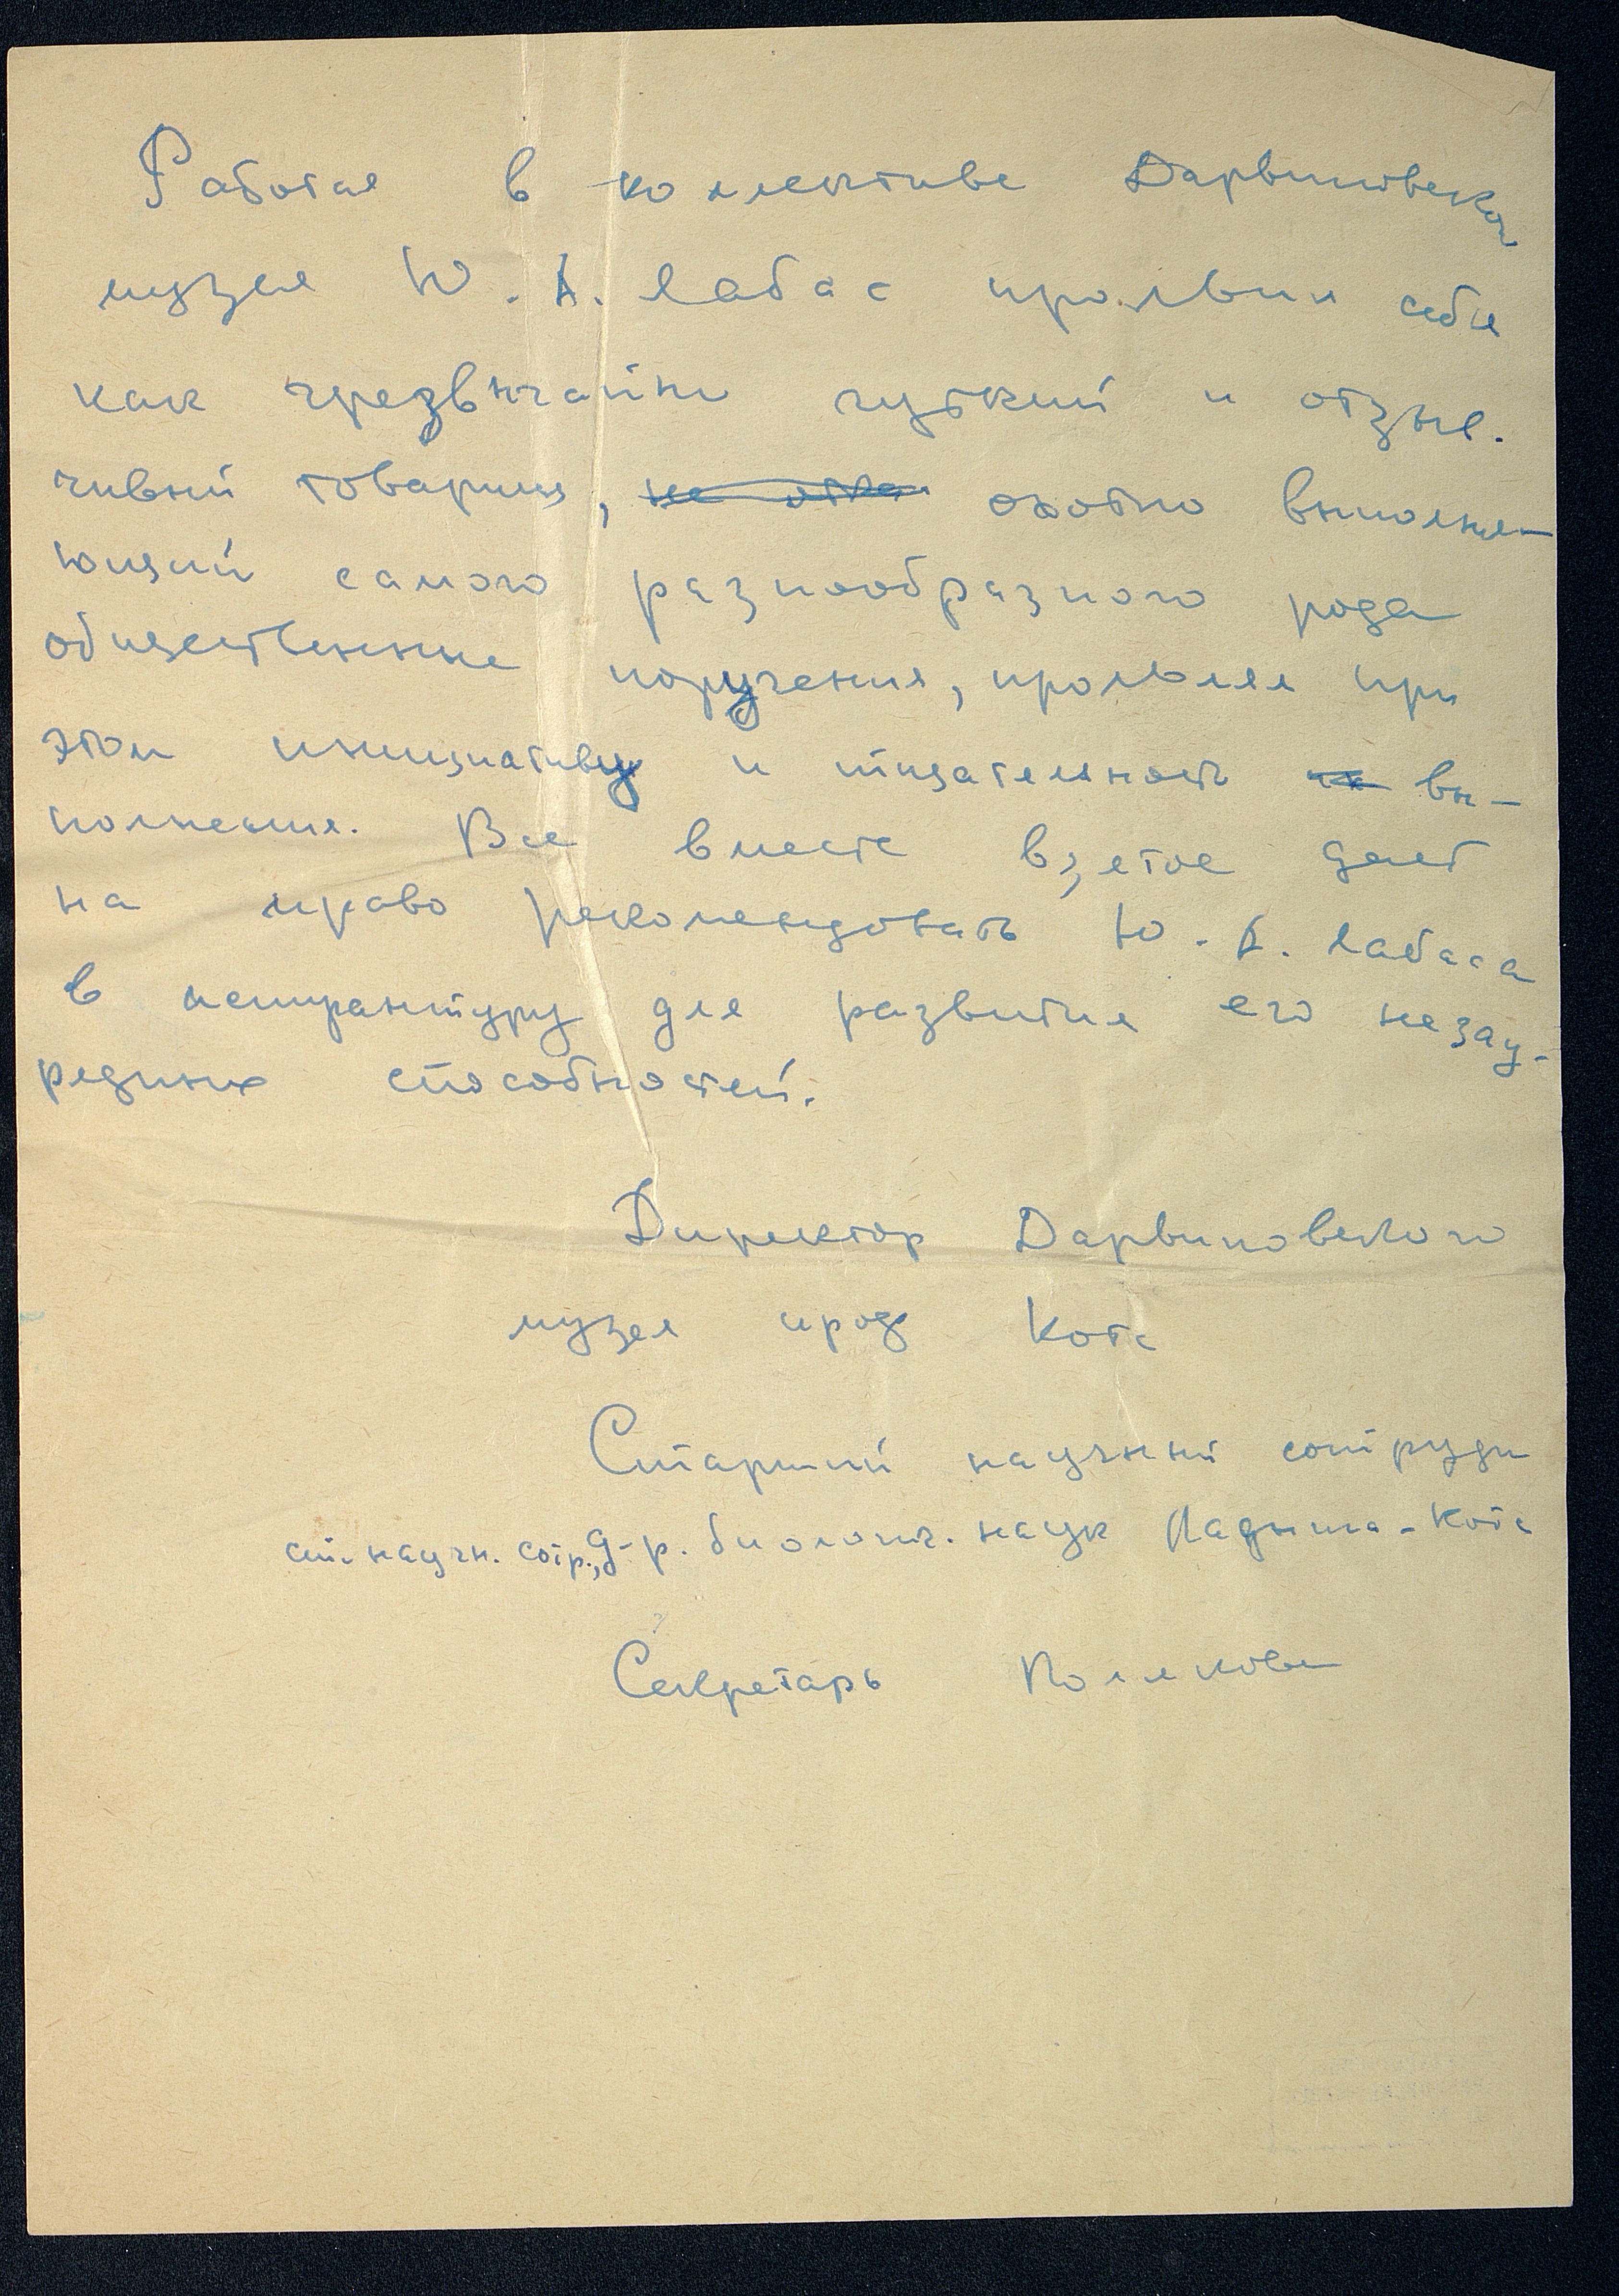 Работая в коллективе Дарвиновского
музея Ю. А. Лабас проявил себя
как чрезвычайно чуткий и отзыв-
чивый товарищ, охотно выполня-
ющий самого разнообразного рода
общественные поручения, проявляя при
этом инициативу и тщательность вы-
полнения. Все вместе взятое дает
на право рекомендовать Ю. А. Лабаса
в аспирантуру для развития его незау-
рядных способностей.
Директор Дарвиновского
музея проф Котс
Старший научный сотрудн
ст. научн. сотр., д-р. биологич. наук Ладыгина-Котс
Секретарь Полякова